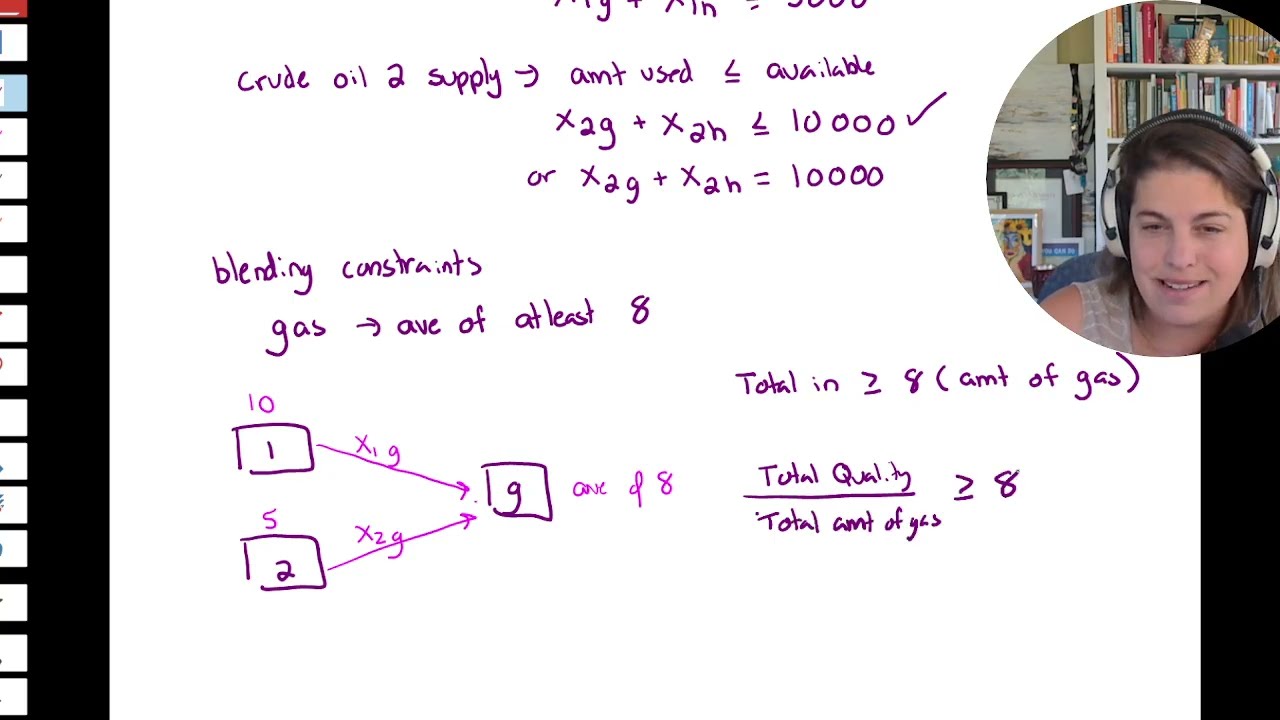 x1g + x1h = 5000
Crude oil 2 supply → amt used ≤ available
x2g + x2h ≤ 10000 ✓
or x2g + x2h = 10000
blending constraints
gas → ave of atleast 8
Total in ≥ 8 (amt of gas)
10
1
x1g
g
ave of 8
Total Quality
≥ 8
Total amt of gas
5
x2g
2